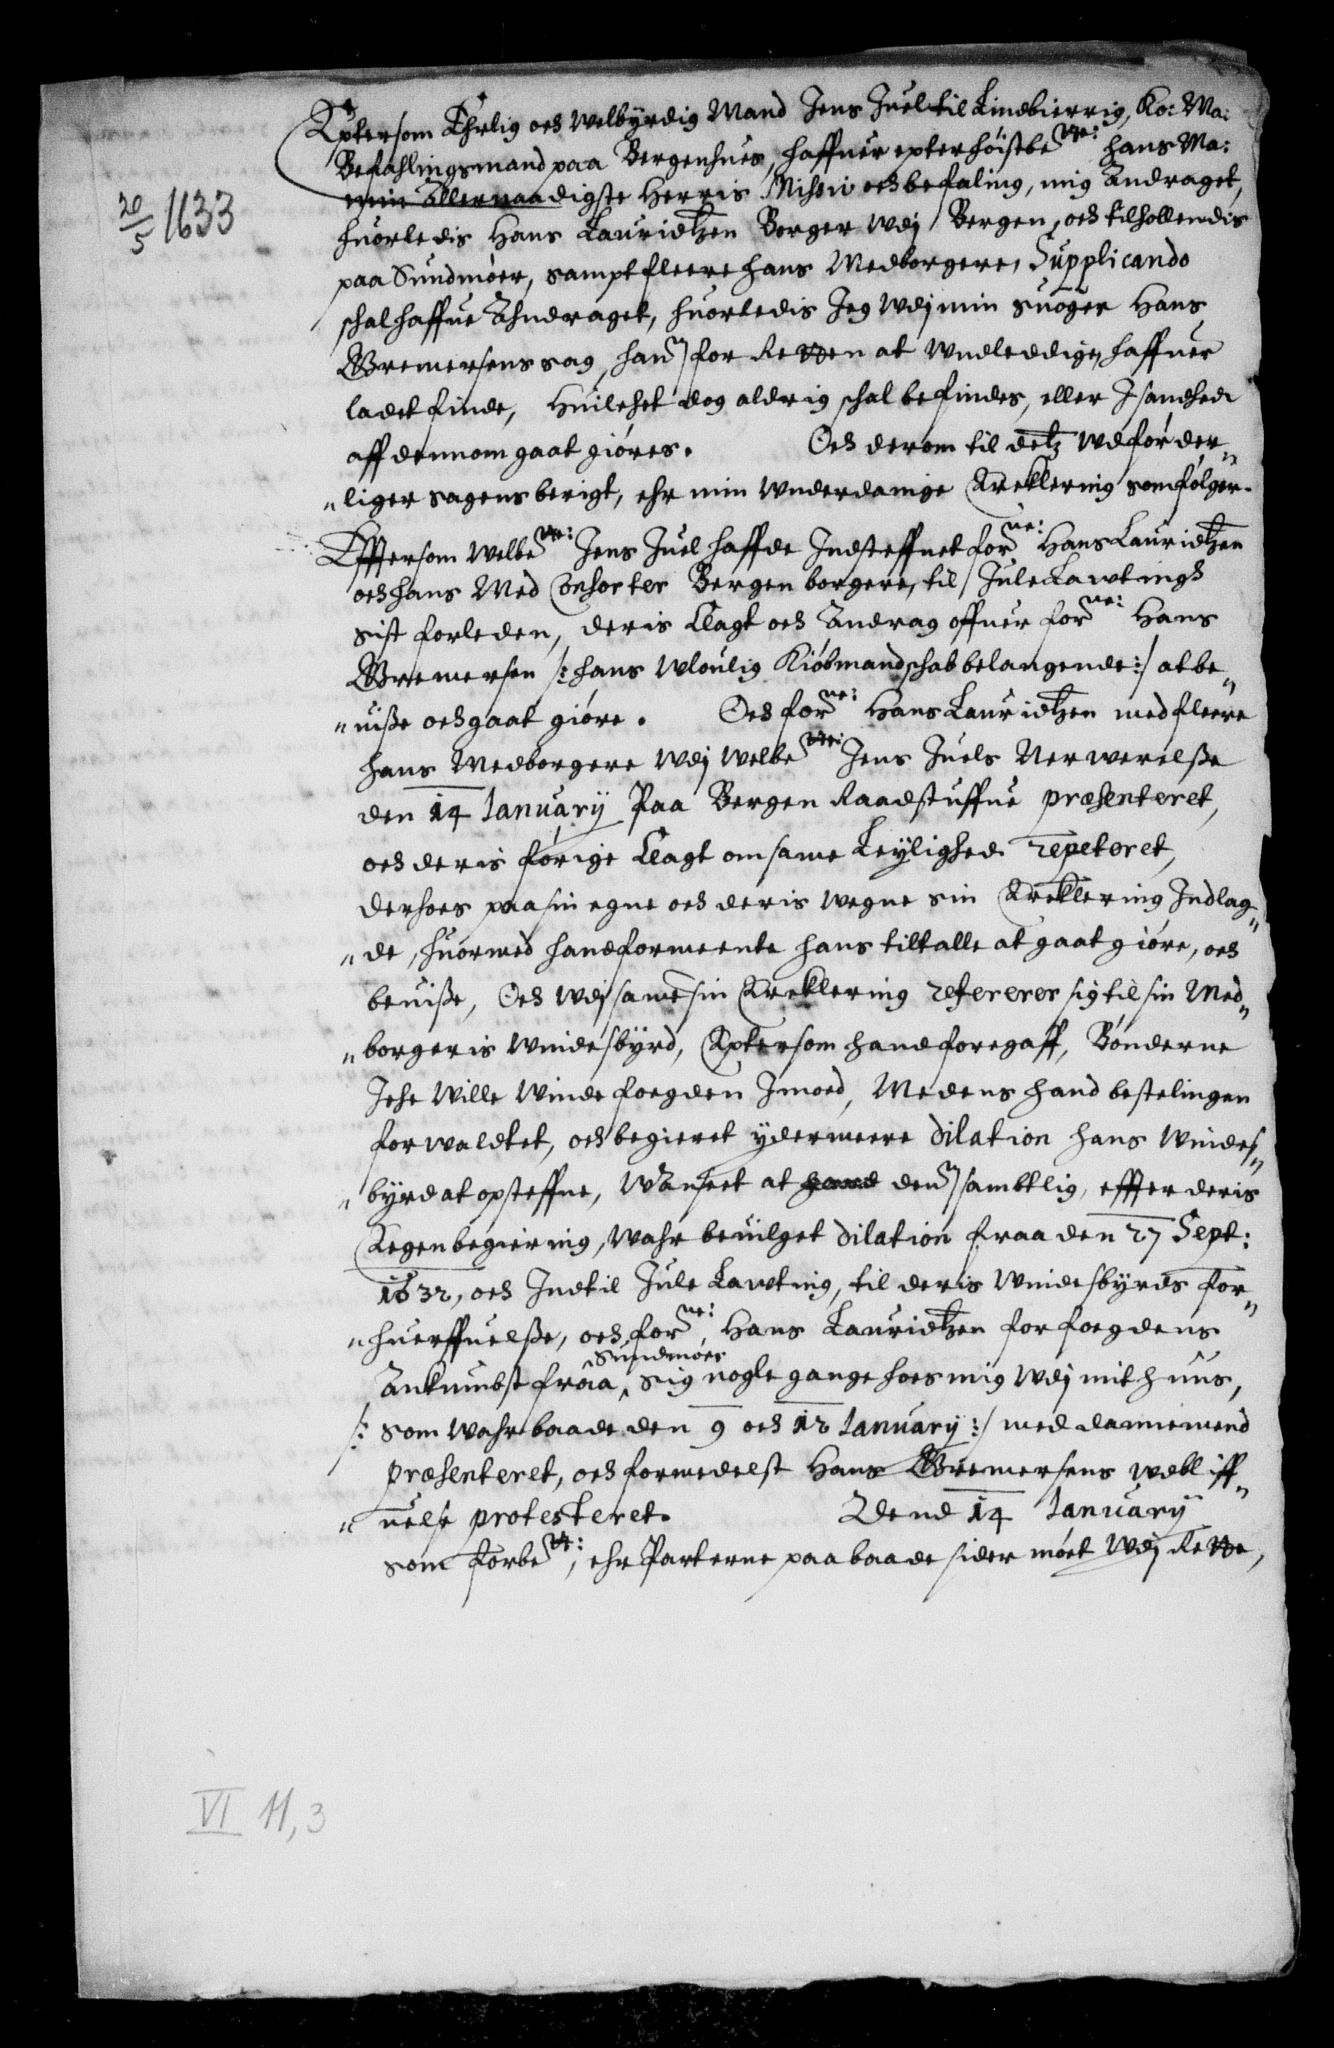 Epter som Ehrlig och Welbyrdig Mand Jens Juel til Lindbierrig, Ko: Ma:
Befahlingsmand paa Bergenhuus, haffuer epter høistbete: hans Ma:
20/5 1633
min Allernaadigste Herris Missiv och befaling, mig Andraget,
huorledis Hans Lauridtzen Borger wdj Bergen, och tilholdendis
paa Sundmøer, sampt fleere hans Medborgere, Supplicando
schal haffue Ahndraget, huorledis Jeg wdj min Suoger Hans
Bremersens sag, hannem for Retten at Wndleddige, haffuer
ladet finde, Huilchet dog aldrig schal befindes, eller J sandhed
aff dennom gaat giøres. Och derom til detz wdførder„
„liger sagens berigt, ehr min Wnderdanige Erklering som følger.
Effter som Welbete: Jens Juel haffde Indsteffnet forne: Hans Lauridtzen
och hans Med Consorter Bergen borgere, til Jule Lawtingh
sist forleden, deris Clagt och Andrag offuer forne: Hans
Bremersen /: hans Wloulig Kiøbmandschab belangende :/ at be„
„uiße och gaat giøre. Och forne: Hans Lauridtzen med fleere
hans Medborgere wdj Welbte: Jens Juels Nerwerelße
den 14 January Paa Bergen Raadstuffue præsenteret,
och deris førige Clagt om same Leylighed repeteret,
derhoes paa sin egne och deris wegne sin Erklering Indlag„
„de, huormed hand formeente hans tiltalle at gaat giøre, och
beuiße, Och wdj same sin Erklering refererer sig til sin Med„
„borgeris Windesbyrd, Epter som hand foregaff, Bønderne
Iche Wille Winde foegden Imoed, Medens hand bestelingen
forwaldtet, och begieret ydermeere dilation hans Windes„
„byrd at opsteffne, Wanseet at hand dennem samptlig, effter deris
Eegen begiering, wahr beuilget dilation fraa den 27 Sept:
1632, och Indtil Jule Lawting, til deris Windesbyrds for„
„huerffuelße, och forne: Hans Lauridtzen for foegdens
Ankumbst fraa Sundmøer sig nogle gange hoes mig wdj mit huus,
/: som wahr baade den 9 och 12 January :/ med dannemend
præsenteret, och formedelst Hans Bremersens wdbliff„
„uelse protesteret. Dend 14 January
som forbete:, ehr Parterne paa baade sider møet wdj Rette,
VI 11,3